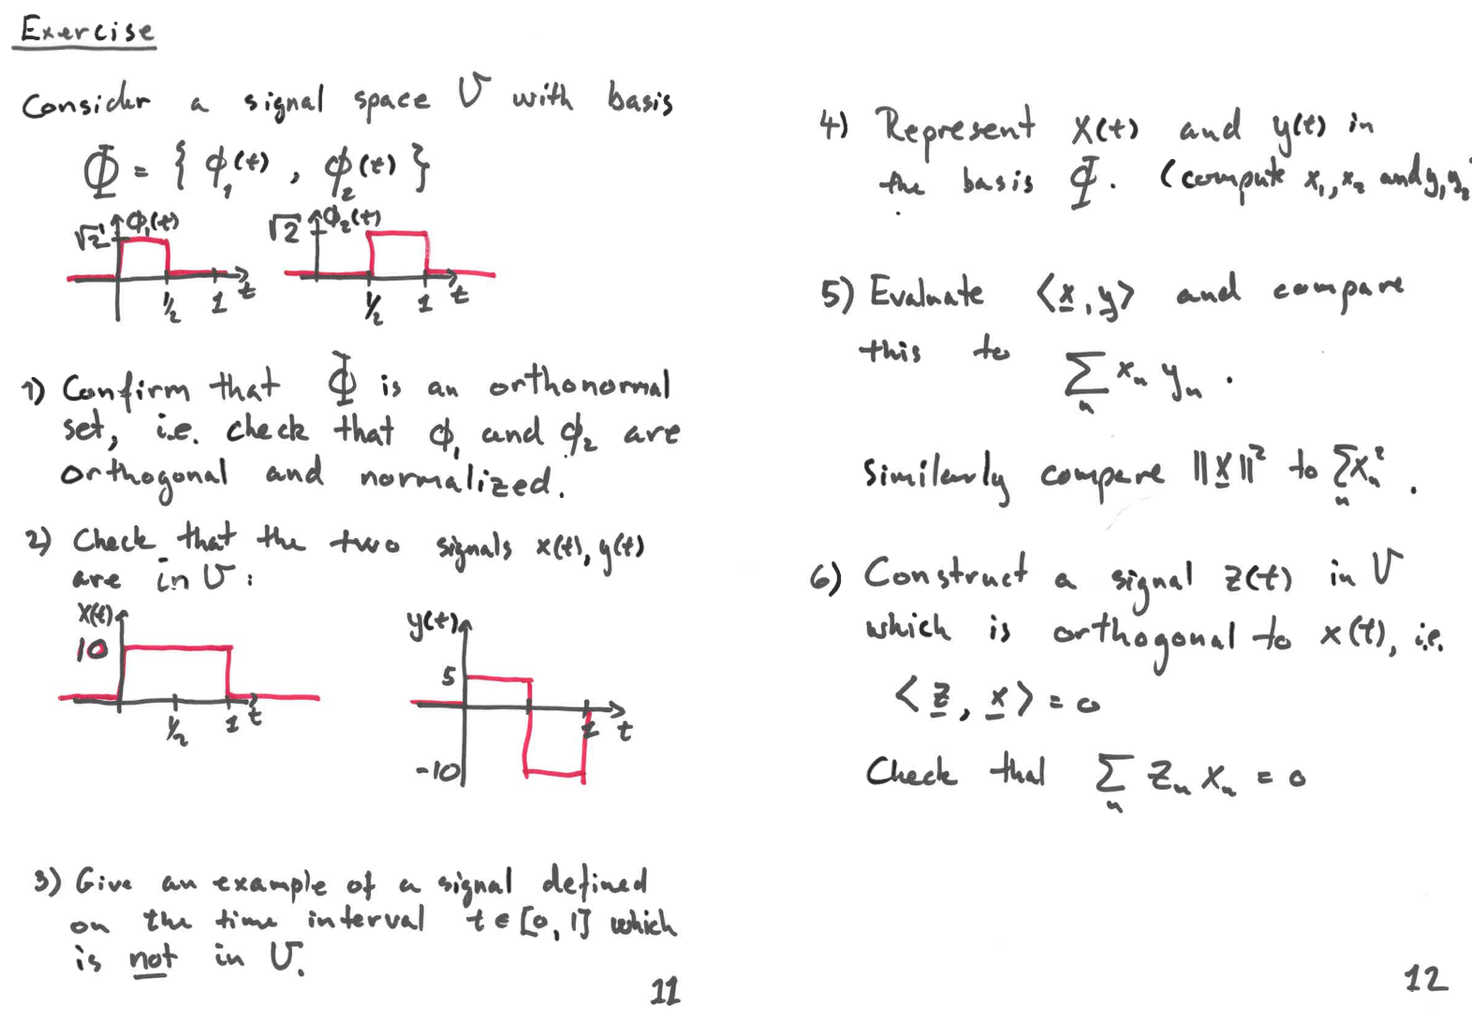 Exercise
Consider a signal space V with basis
Φ = { ϕ₁(t) , ϕ₂(t) }
√2 ϕ₁(t) √2 ϕ₂(t)
½ 1 t ½ 1 t
1) Confirm that Φ is an orthonormal
set, i.e. check that ϕ₁ and ϕ₂ are
orthogonal and normalized.
2) Check that the two signals x(t), y(t)
are in V:
x(t) y(t)
10 5
½ 1 t 1 t
-10
3) Give an example of a signal defined
on the time interval t ∈ [0, 1] which
is not in V.
11
4) Represent x(t) and y(t) in
the basis Φ. (compute x₁, x₂ and y₁, y₂
5) Evaluate <x, y> and compare
this to Σₙ xₙ yₙ .
Similarly compare ||x||² to Σₙ xₙ² .
6) Construct a signal z(t) in V
which is orthogonal to x(t), i.e.
<z, x> = 0
Check that Σₙ zₙ xₙ = 0
12